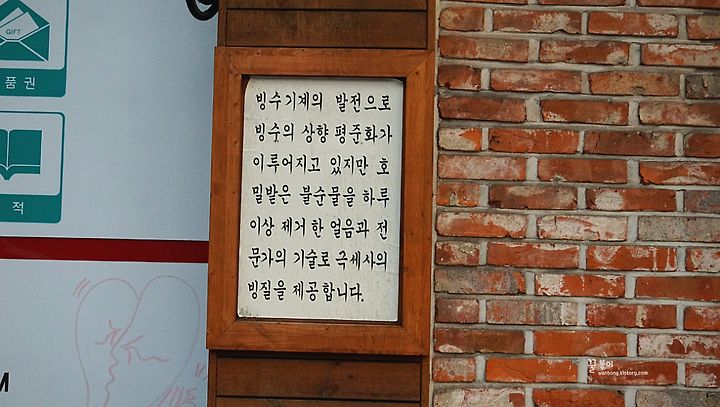 GIFT
품권
적
M
빙수기계의 발전으로
빙수의 상향 평준화가
이루어지고 있지만 호
밀밭은 불순물을 하루
이상 제거한 얼음과 전
문가의 기술로 극세사의
빙질을 제공합니다.
wanbong.tistory.com